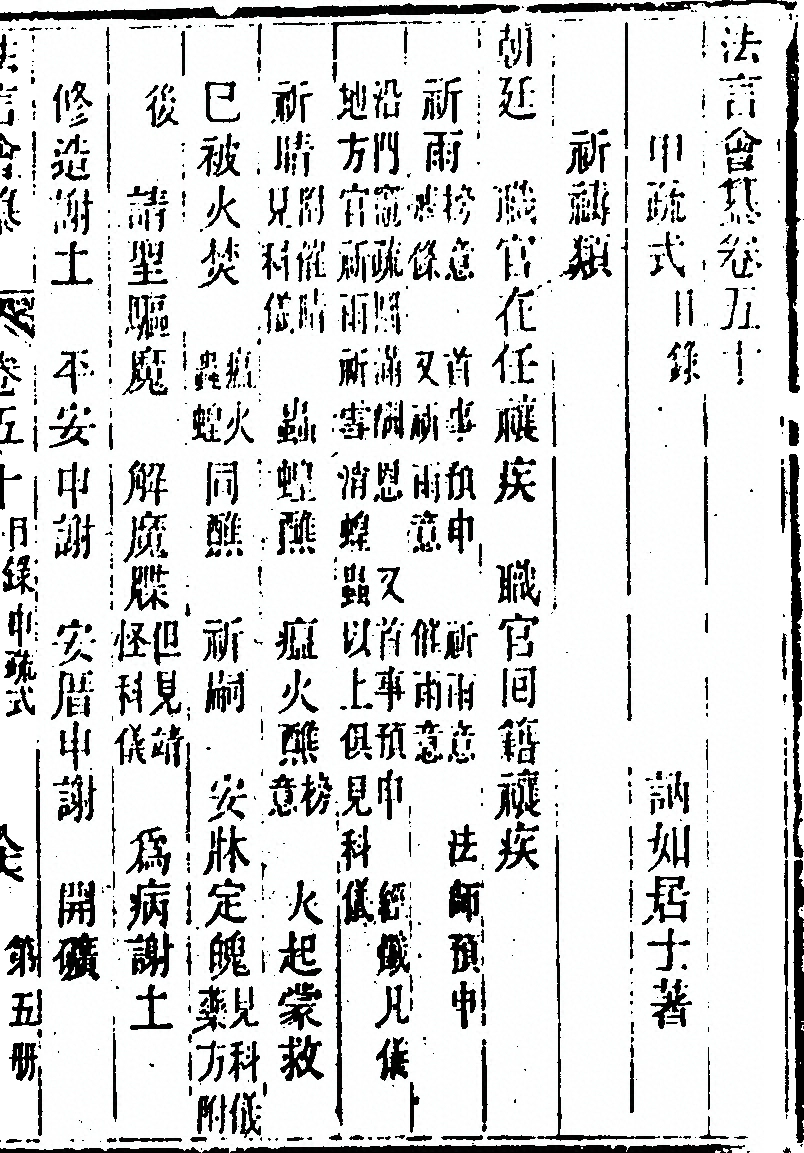 法言會纂卷五十
申疏式目錄 訥如居士著
祈禱類
朝廷 職官在任禳疾 職官回籍禳疾
祈雨榜意 首事預申 祈雨意 法師預申
條 又祈雨意 催雨意
沿門疏 恩 又首事預申 經懺凡儀
地方官祈雨祈 消蝗蟲以上俱見科儀
祈晴附催晴見科儀 蟲蝗醮 瘟火醮榜意 火起蒙救
已被火焚 瘟火蟲蝗同醮 祈嗣 安牀定魄見科儀藥方附
後 請聖驅魔 解魔牒但見靖怪科儀 為病謝土
修造謝土 平安申謝 安厝申謝 開礦
法言會纂 卷五十目錄申疏式 第五冊